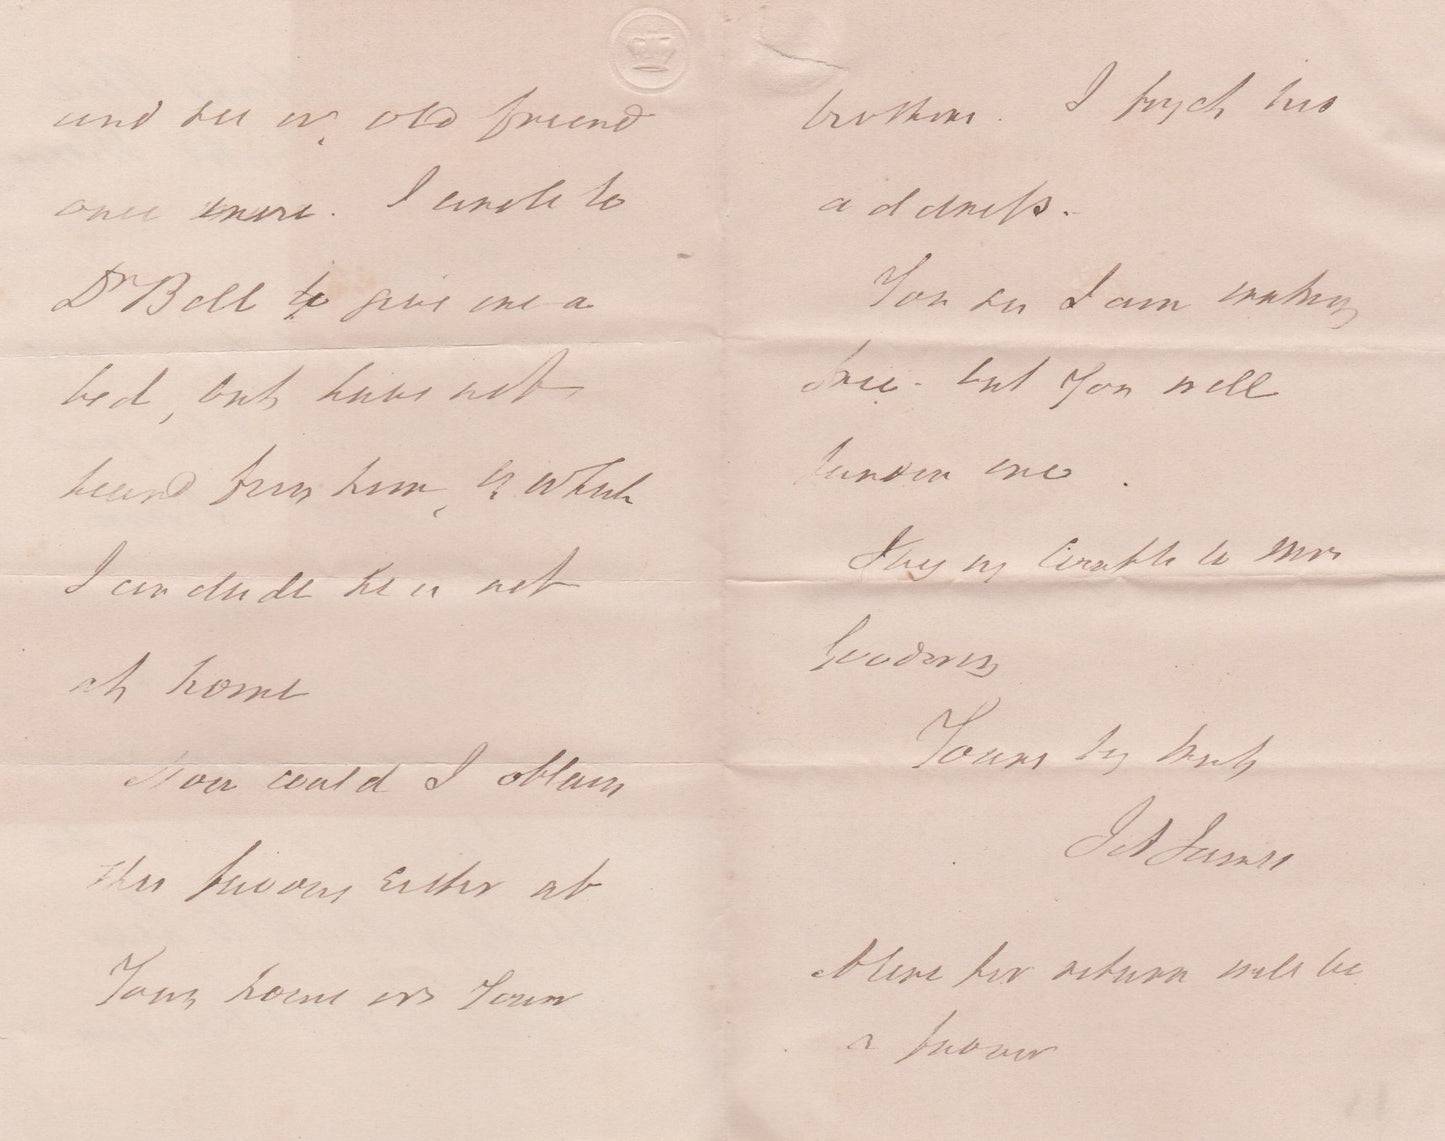 and see an old friend
once more. I wrote to
Dr Bell to give me a
bed, but have not
heard from him, &
I conclude he is not
at home
Now could I obtain
this favour either at
Your home or Your
brothers. I forget his
address.
You see I am making
free - but you will
pardon me.
to Mrs
Yours truly
James
return will be
a favour